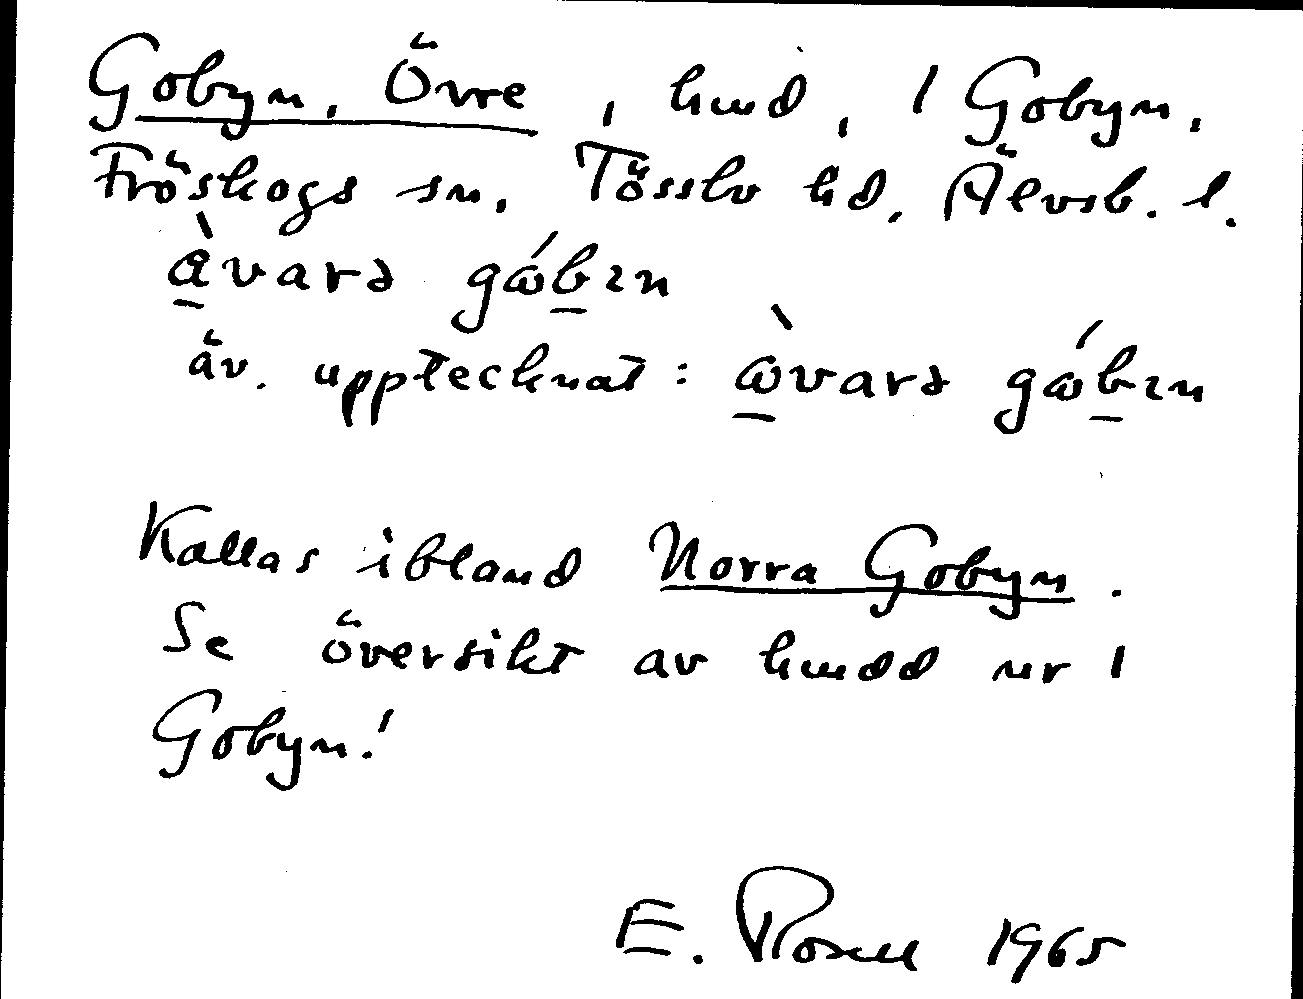 Gobyn, Övre, hmd, i Gobyn,
Fröskogs sn, Tössbo hd, Älvsb. l.
àvarə gǿbɪn
äv. upptecknat: ὼvarə gǿbɪn
Kallas ibland Norra Gobyn.
Se översikt av hmdd nr 1
Gobyn!
E. 1965